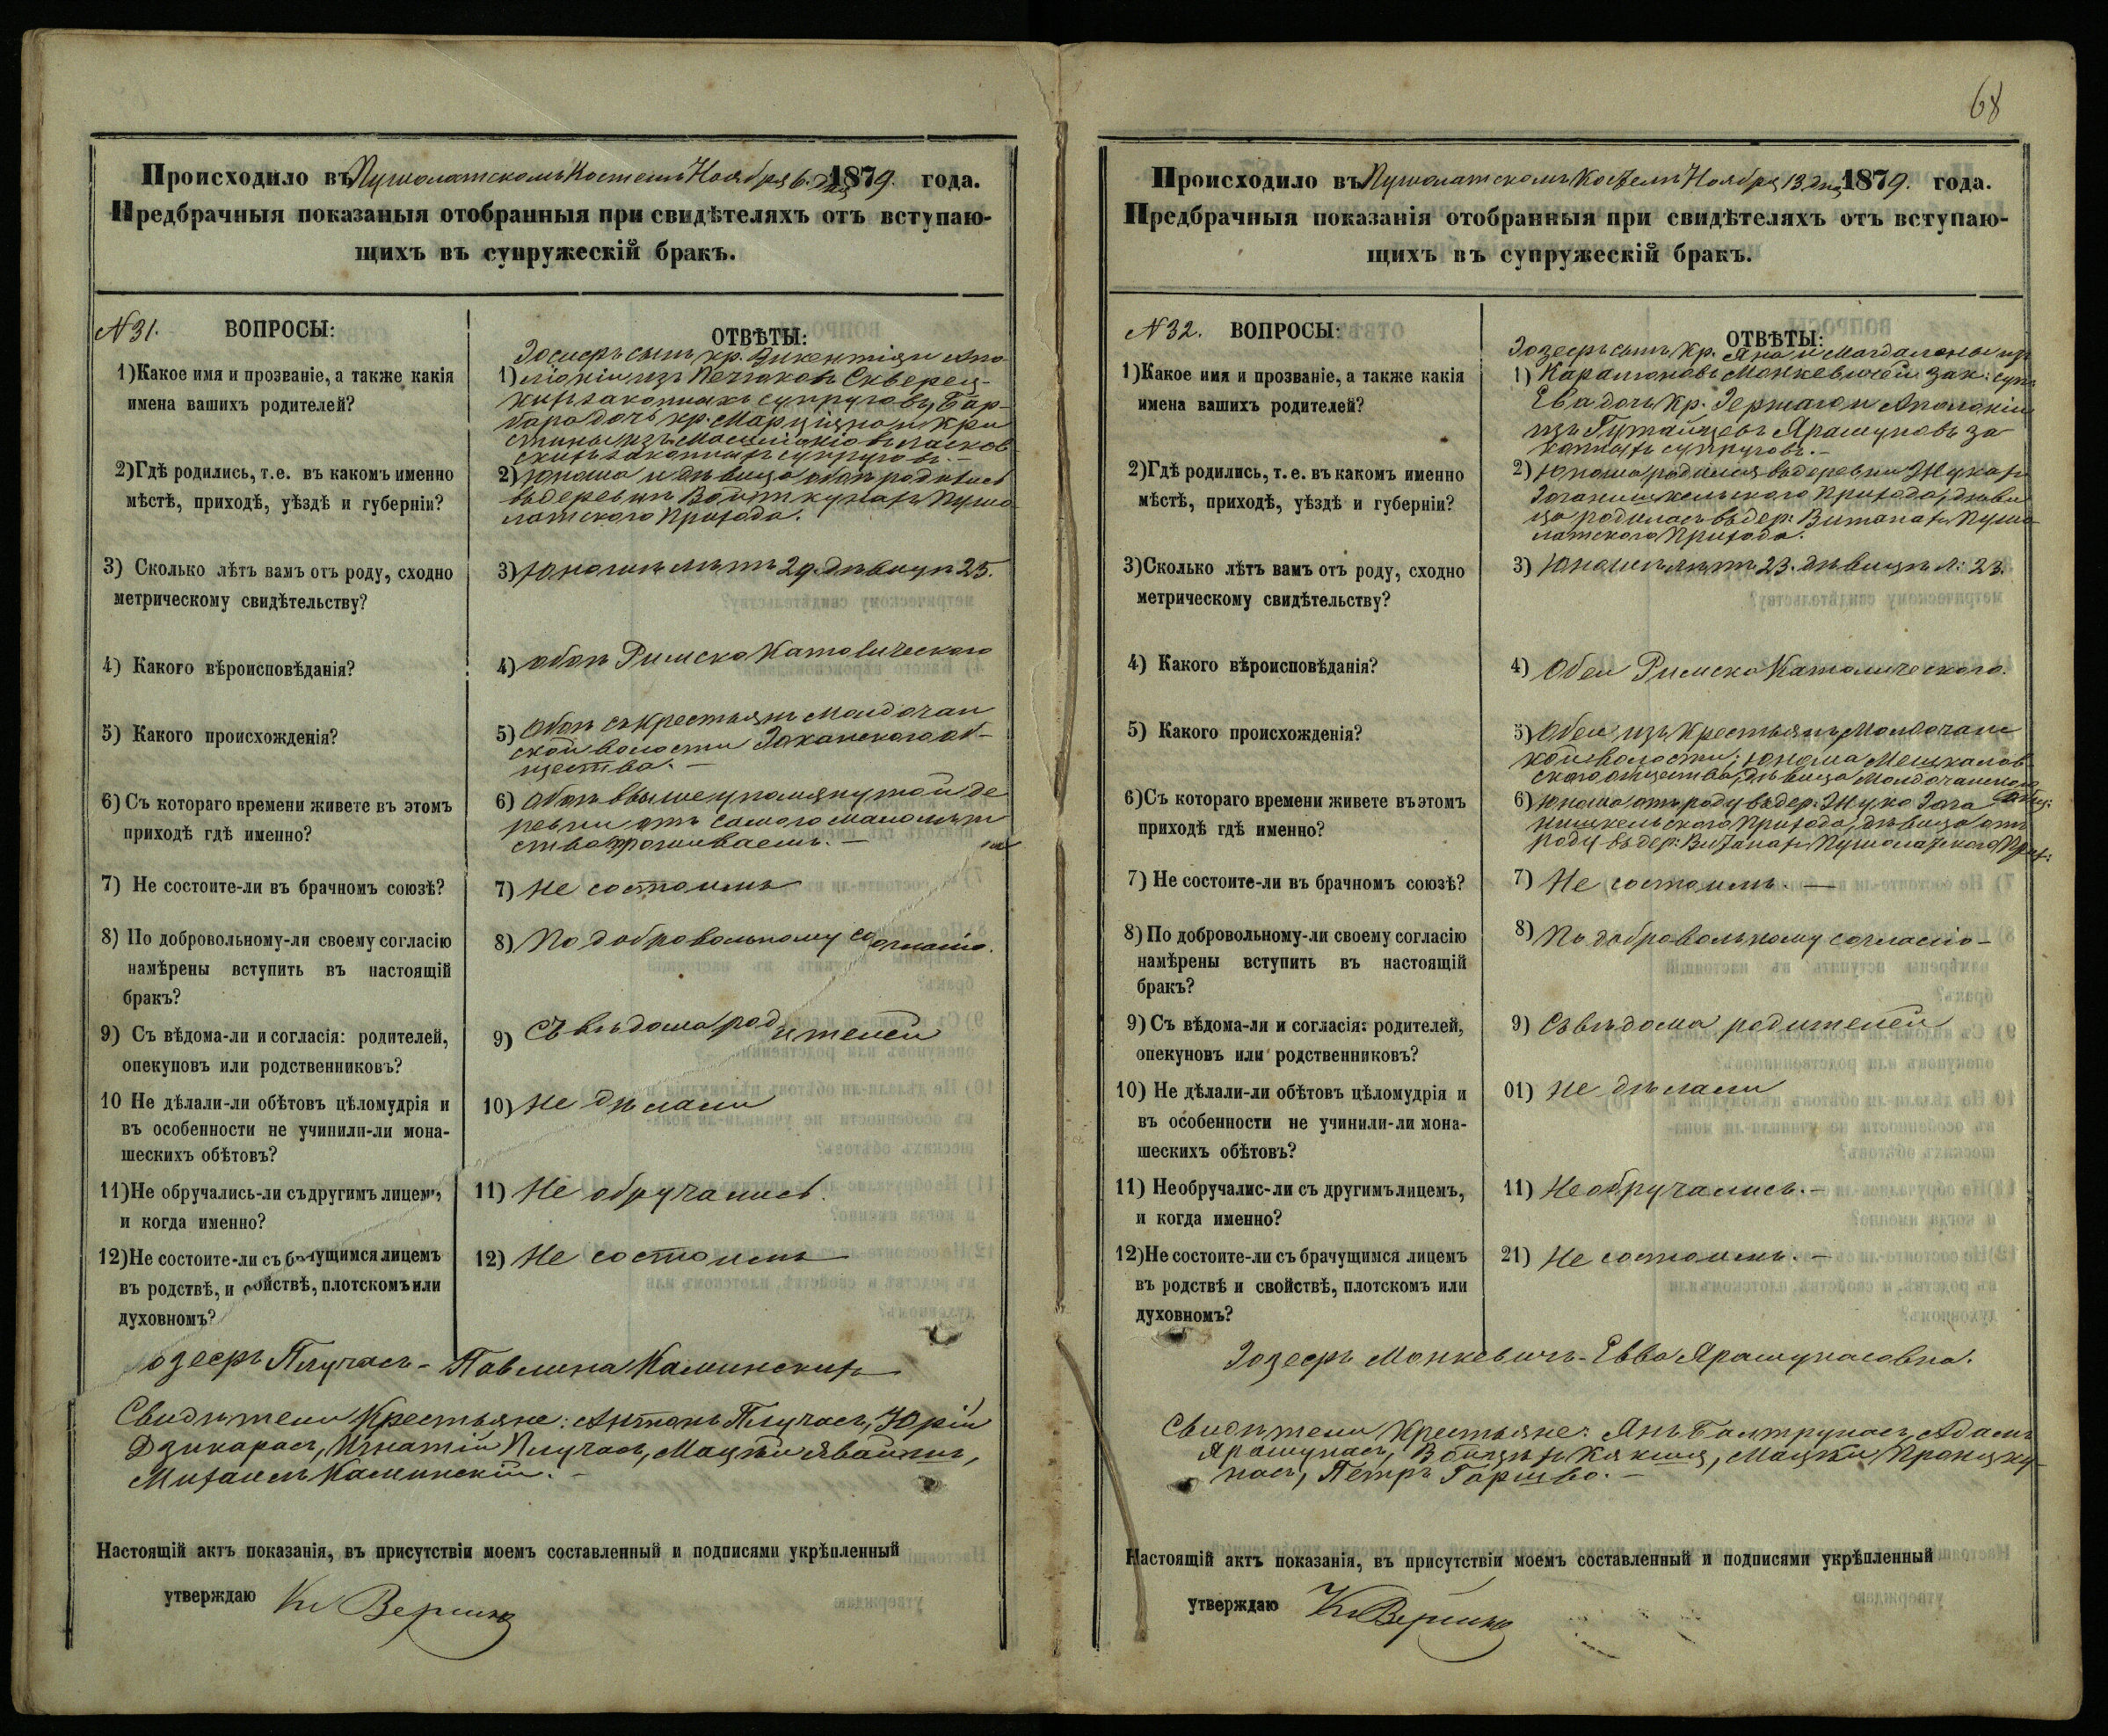 Происходило въ Пушолатскомъ Костелѣ Ноября 6. дня 1879. года.
Предбрачныя показаныя отобранныя при свидѣтеляхъ отъ вступаю-
щихъ въ супружескій бракъ.
№31. ВОПРОСЫ:
1)Какое имя и прозваніе, а также какія
имена вашихъ родителей?
2)Гдѣ родились, т.е. въ какомъ именно
мѣстѣ, приходѣ, уѣздѣ и губерніи?
3) Сколько лѣтъ вамъ отъ роду, сходно
метрическому свидѣтельству?
4) Какого вѣроисповѣданія?
5) Какого происхожденія?
6) Съ котораго времени живете въ этомъ
приходѣ гдѣ именно?
7) Не состоите-ли въ брачномъ союзѣ?
8) По добровольному-ли своему согласію
намѣрены вступить въ настоящій
бракъ?
9) Съ вѣдома-ли и согласія: родителей,
опекуновъ или родственниковъ?
10 Не дѣлали-ли обѣтовъ цѣломудрія и
въ особенности не учинили-ли мона-
шескихъ обѣтовъ?
11)Не обручались-ли съ другимъ лицемъ,
и когда именно?
12)Не состоите-ли съ брачущимся лицемъ
въ родствѣ, и свойствѣ, плотскомъ или
духовномъ?
ОТВѢТЫ:
сынъ кр. Викентія и Апо-
1) лоніи изъ
законныхъ супруговъ, Бар-
бара дочь кр. Марціяна и Кри
стины изъ
законныхъ супруговъ. –
2) Юноша и дѣвица оба родились
въ деревнѣ Войткунахъ Пушо
латского Прихода.
3) Юношѣ лѣтъ 29. дѣвицѣ 25.
4) Обоѣ Римско Католического
5) Обоѣ съ крестьянъ Молдочан
ской волости общества. –
6) Обоѣ въ вышеупомянутой де
ревни отъ самого малолѣт
ства проживаемъ. –
7) Не состоимъ
8) По добровольному согласію.
9) Съ вѣдома родителей
10) Не дѣлали
11) Не обручались.
12) Не состоимъ
озефъ Плучасъ – Павлина Каминскихъ
Свидѣтели Крестьяне: Антонъ Плучасъ, Юрій
Дзикарасъ, Игнатій Плучасъ, Мацѣй
Михаилъ Каминскій. –
Настоящій актъ показанія, въ присутствіи моемъ составленный и подписями укрѣпленный
утверждаю
68
Происходило въ Пушолатскомъ Костелѣ Ноября 13. дня 1879. года.
Предбрачныя показанія отобранныя при свидѣтеляхъ отъ вступаю-
щихъ въ супружескій бракъ.
№32. ВОПРОСЫ:
1)Какое имя и прозваніе, а также какія
имена вашихъ родителей?
2)Гдѣ родились, т.е. въ какомъ именно
мѣстѣ, приходѣ, уѣздѣ и губерніи?
3)Сколько лѣтъ вамъ отъ роду, сходно
метрическому свидѣтельству?
4) Какого вѣроисповѣданія?
5) Какого происхожденія?
6)Съ котораго времени живете въ этомъ
приходѣ гдѣ именно?
7) Не состоите-ли въ брачномъ союзѣ?
8) По добровольному-ли своему согласію
намѣрены вступить въ настоящій
бракъ?
9) Съ вѣдома-ли и согласія: родителей,
опекуновъ или родственниковъ?
10) Не дѣлали-ли обѣтовъ цѣломудрія и
въ особенности не учинили-ли мона-
шескихъ обѣтовъ?
11) Необручалис-ли съ другимъ лицемъ,
и когда именно?
12)Не состоите-ли съ брачущимся лицемъ
въ родствѣ и свойствѣ, плотскомъ или
духовномъ?
ОТВѢТЫ:
Іозефъ сынъ кр. Яна и Магдалены изъ
1) Монкевичей зак: суп:
Ева дочь кр. и Аполоніи
изъ Ярашуновъ за
конныхъ супруговъ. –
2) Юноша родился въ деревни
Прихода, дѣви
ца родилась въ дер: Витанахъ Пушо
латского Прихода.
3) Юношѣ лѣтъ 23. дѣвицѣ л: 23.
4) Обеи Римско Католического.
5) Обеи изъ крестьянъ Молдочанс
кой волости, юноша
ского общества, дѣвица Молдочанского
6) Юноша отъ роду въ дер:
Прихода, дѣвица отъ
роду въ дер: Витанахъ Пушолатского Прих:
7) Не состоимъ. –
8) По добровольному согласію –
9) Съ вѣдома родителей
01) Не дѣлали
11) Не обручались. –
21) Не состоимъ. –
Іозефъ Монкевичъ – Евва Ярашунасовна.
Свидѣтели Крестьяне: Янъ Балтрунасъ, Адамъ
Ярашунасъ, Мацѣй
Петръ
Настоящій актъ показанія, въ присутствіи моемъ составленный и подписями укрѣпленный
утверждаю